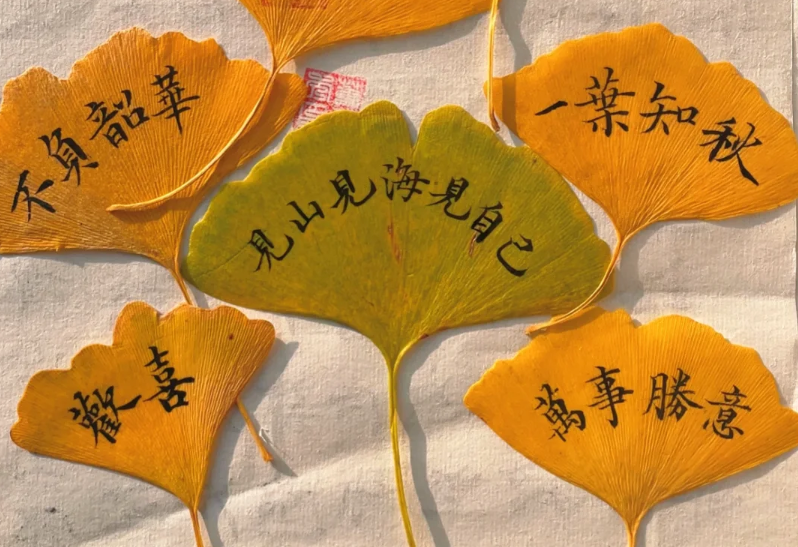 不負韶華
一葉知秋
見山見海見自己
歡喜
萬事勝意